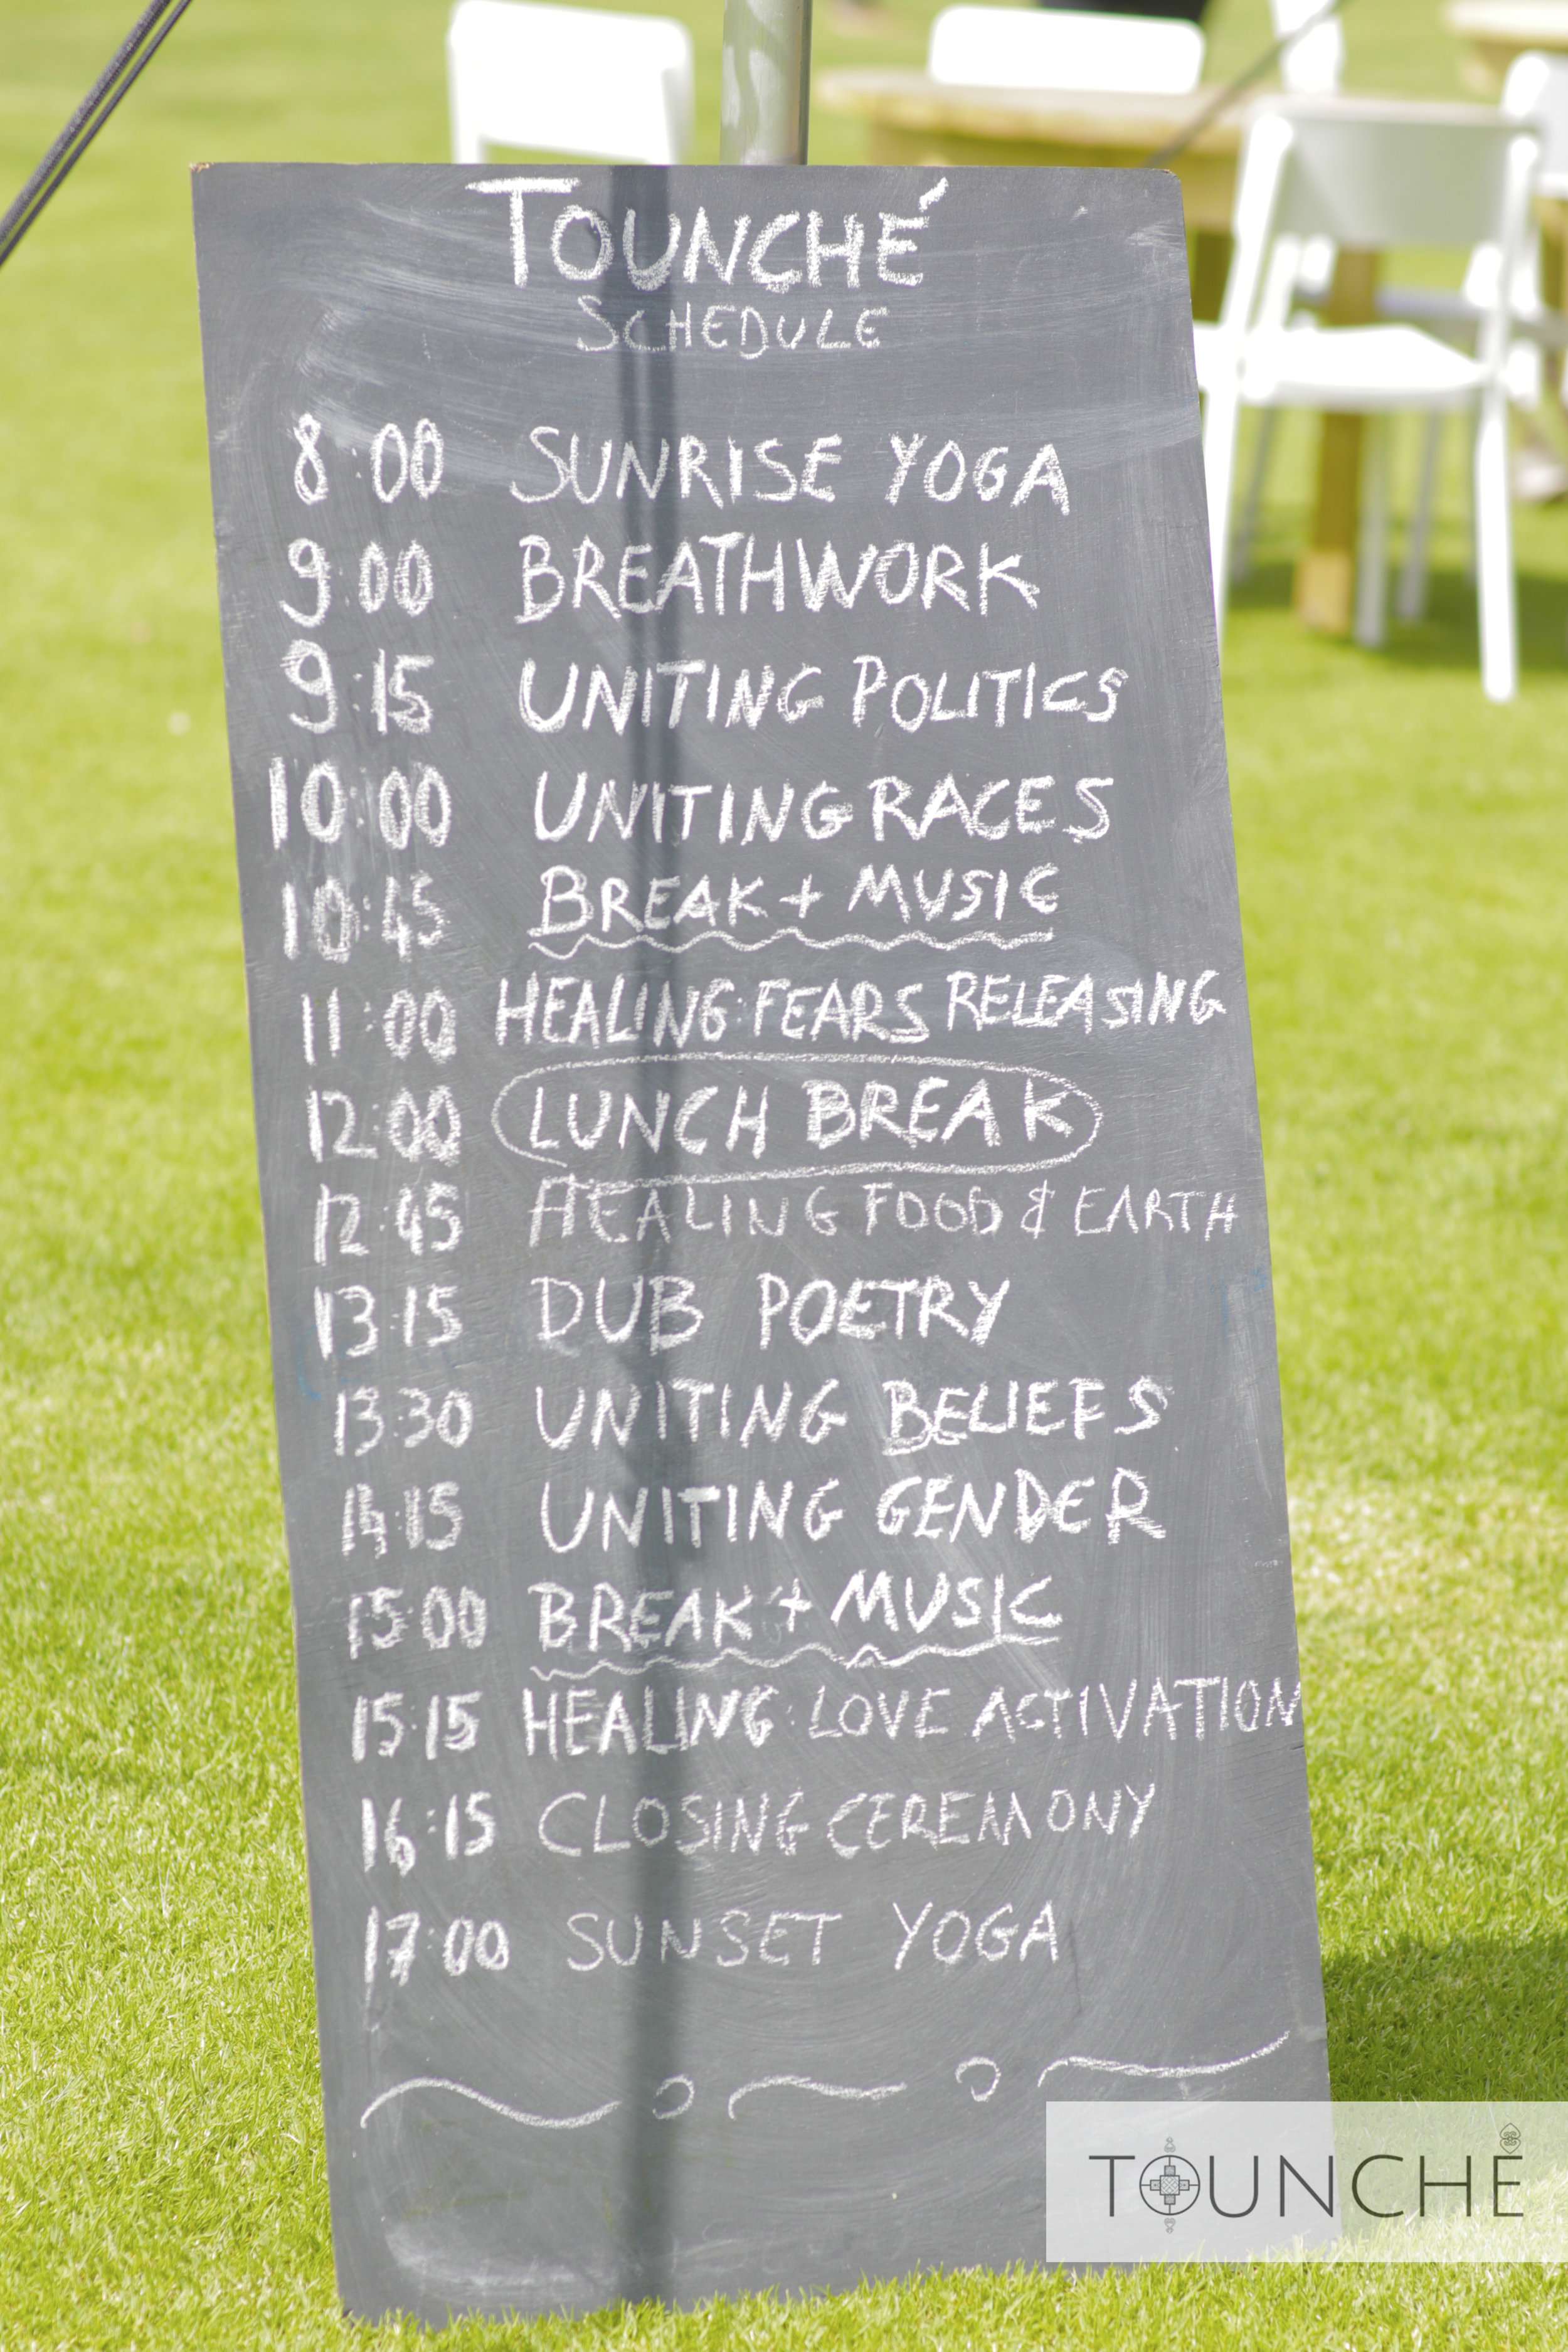 TOUNCHÉ
SCHEDULE
8:00 SUNRISE YOGA
9:00 BREATHWORK
9:15 UNITING POLITICS
10:00 UNITING RACES
10:45 BREAK + MUSIC
11:00 HEALING: FEARS RELEASING
12:00 LUNCH BREAK
12:45 HEALING FOOD & EARTH
13:15 DUB POETRY
13:30 UNITING BELIEFS
14:15 UNITING GENDER
15:00 BREAK + MUSIC
15:15 HEALING: LOVE ACTIVATION
16:15 CLOSING CEREMONY
17:00 SUNSET YOGA
TOUNCHÉ